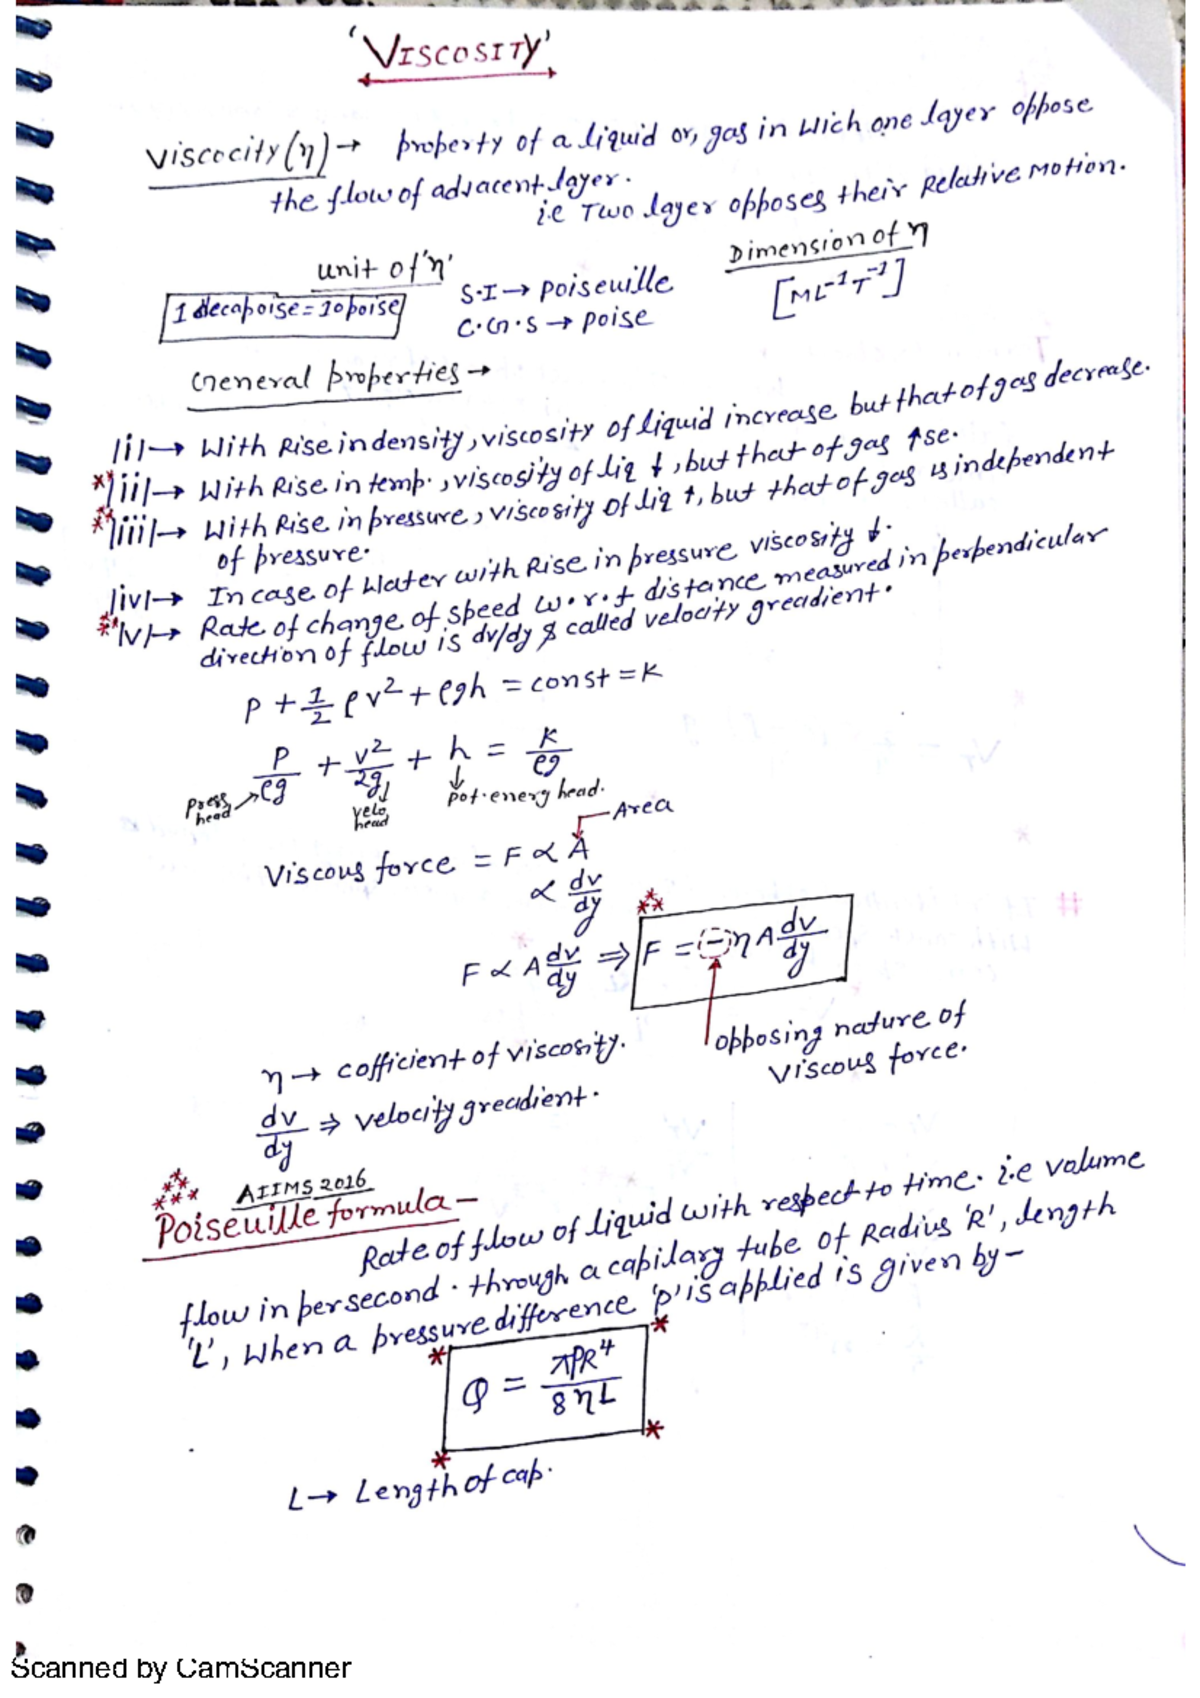 'VISCOSITY'
Viscocity (η) → property of a liquid or, gas in Wich one layer oppose
the flow of adjacent layer.
i.e Two layer opposes their Relative Motion.
unit of 'η'
Dimension of η
1 decapoise = 10 poise
S.I → poiseuille
[ML⁻¹T⁻¹]
C.G.S → poise
General properties →
|i| → With Rise in density, viscosity of liquid increase but that of gas decrease.
*|ii| → With Rise in temp., viscosity of liq ↓, but that of gas ↑se.
**|iii| → With Rise in pressure, viscosity of liq ↑, but that of gas is independent
of pressure.
|iv| → In case of Water with Rise in pressure viscosity ↓.
**|v| → Rate of change of speed w.r.t distance measured in perpendicular
direction of flow is dv/dy & called velocity greadient.
P + 1/2 ρv² + ρgh = const = K
P/ρg + v²/2g + h = K/ρg
Press head
velo. head
pot. energ head.
Area
Viscous force = F ∝ A
∝ dv/dy
F ∝ A dv/dy ⇒ F = (-) η A dv/dy
opposing nature of
viscous force.
η → cofficient of viscosity.
dv/dy ⇒ velocity greadient.
AIIMS 2016
Poiseuille formula –
Rate of flow of liquid with respect to time. i.e volume
flow in per second. through a capilary tube of Radius 'R', length
'L', When a pressure difference 'p' is applied is given by –
Q = πPR⁴/8ηL
L → Length of cap.
Scanned by CamScanner